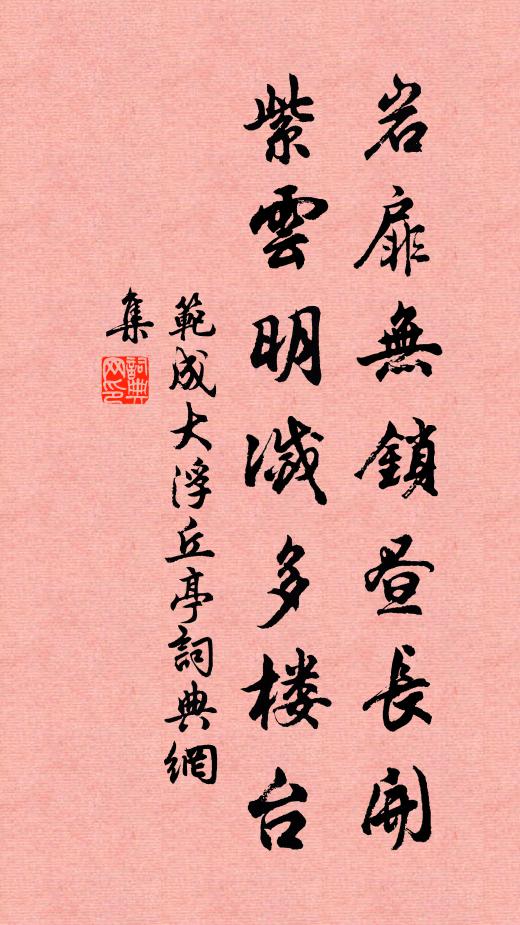 岩扉無鎖昼長開
紫雲明滅多楼台
範成大浮丘亭詞典網
集
詞典
网印